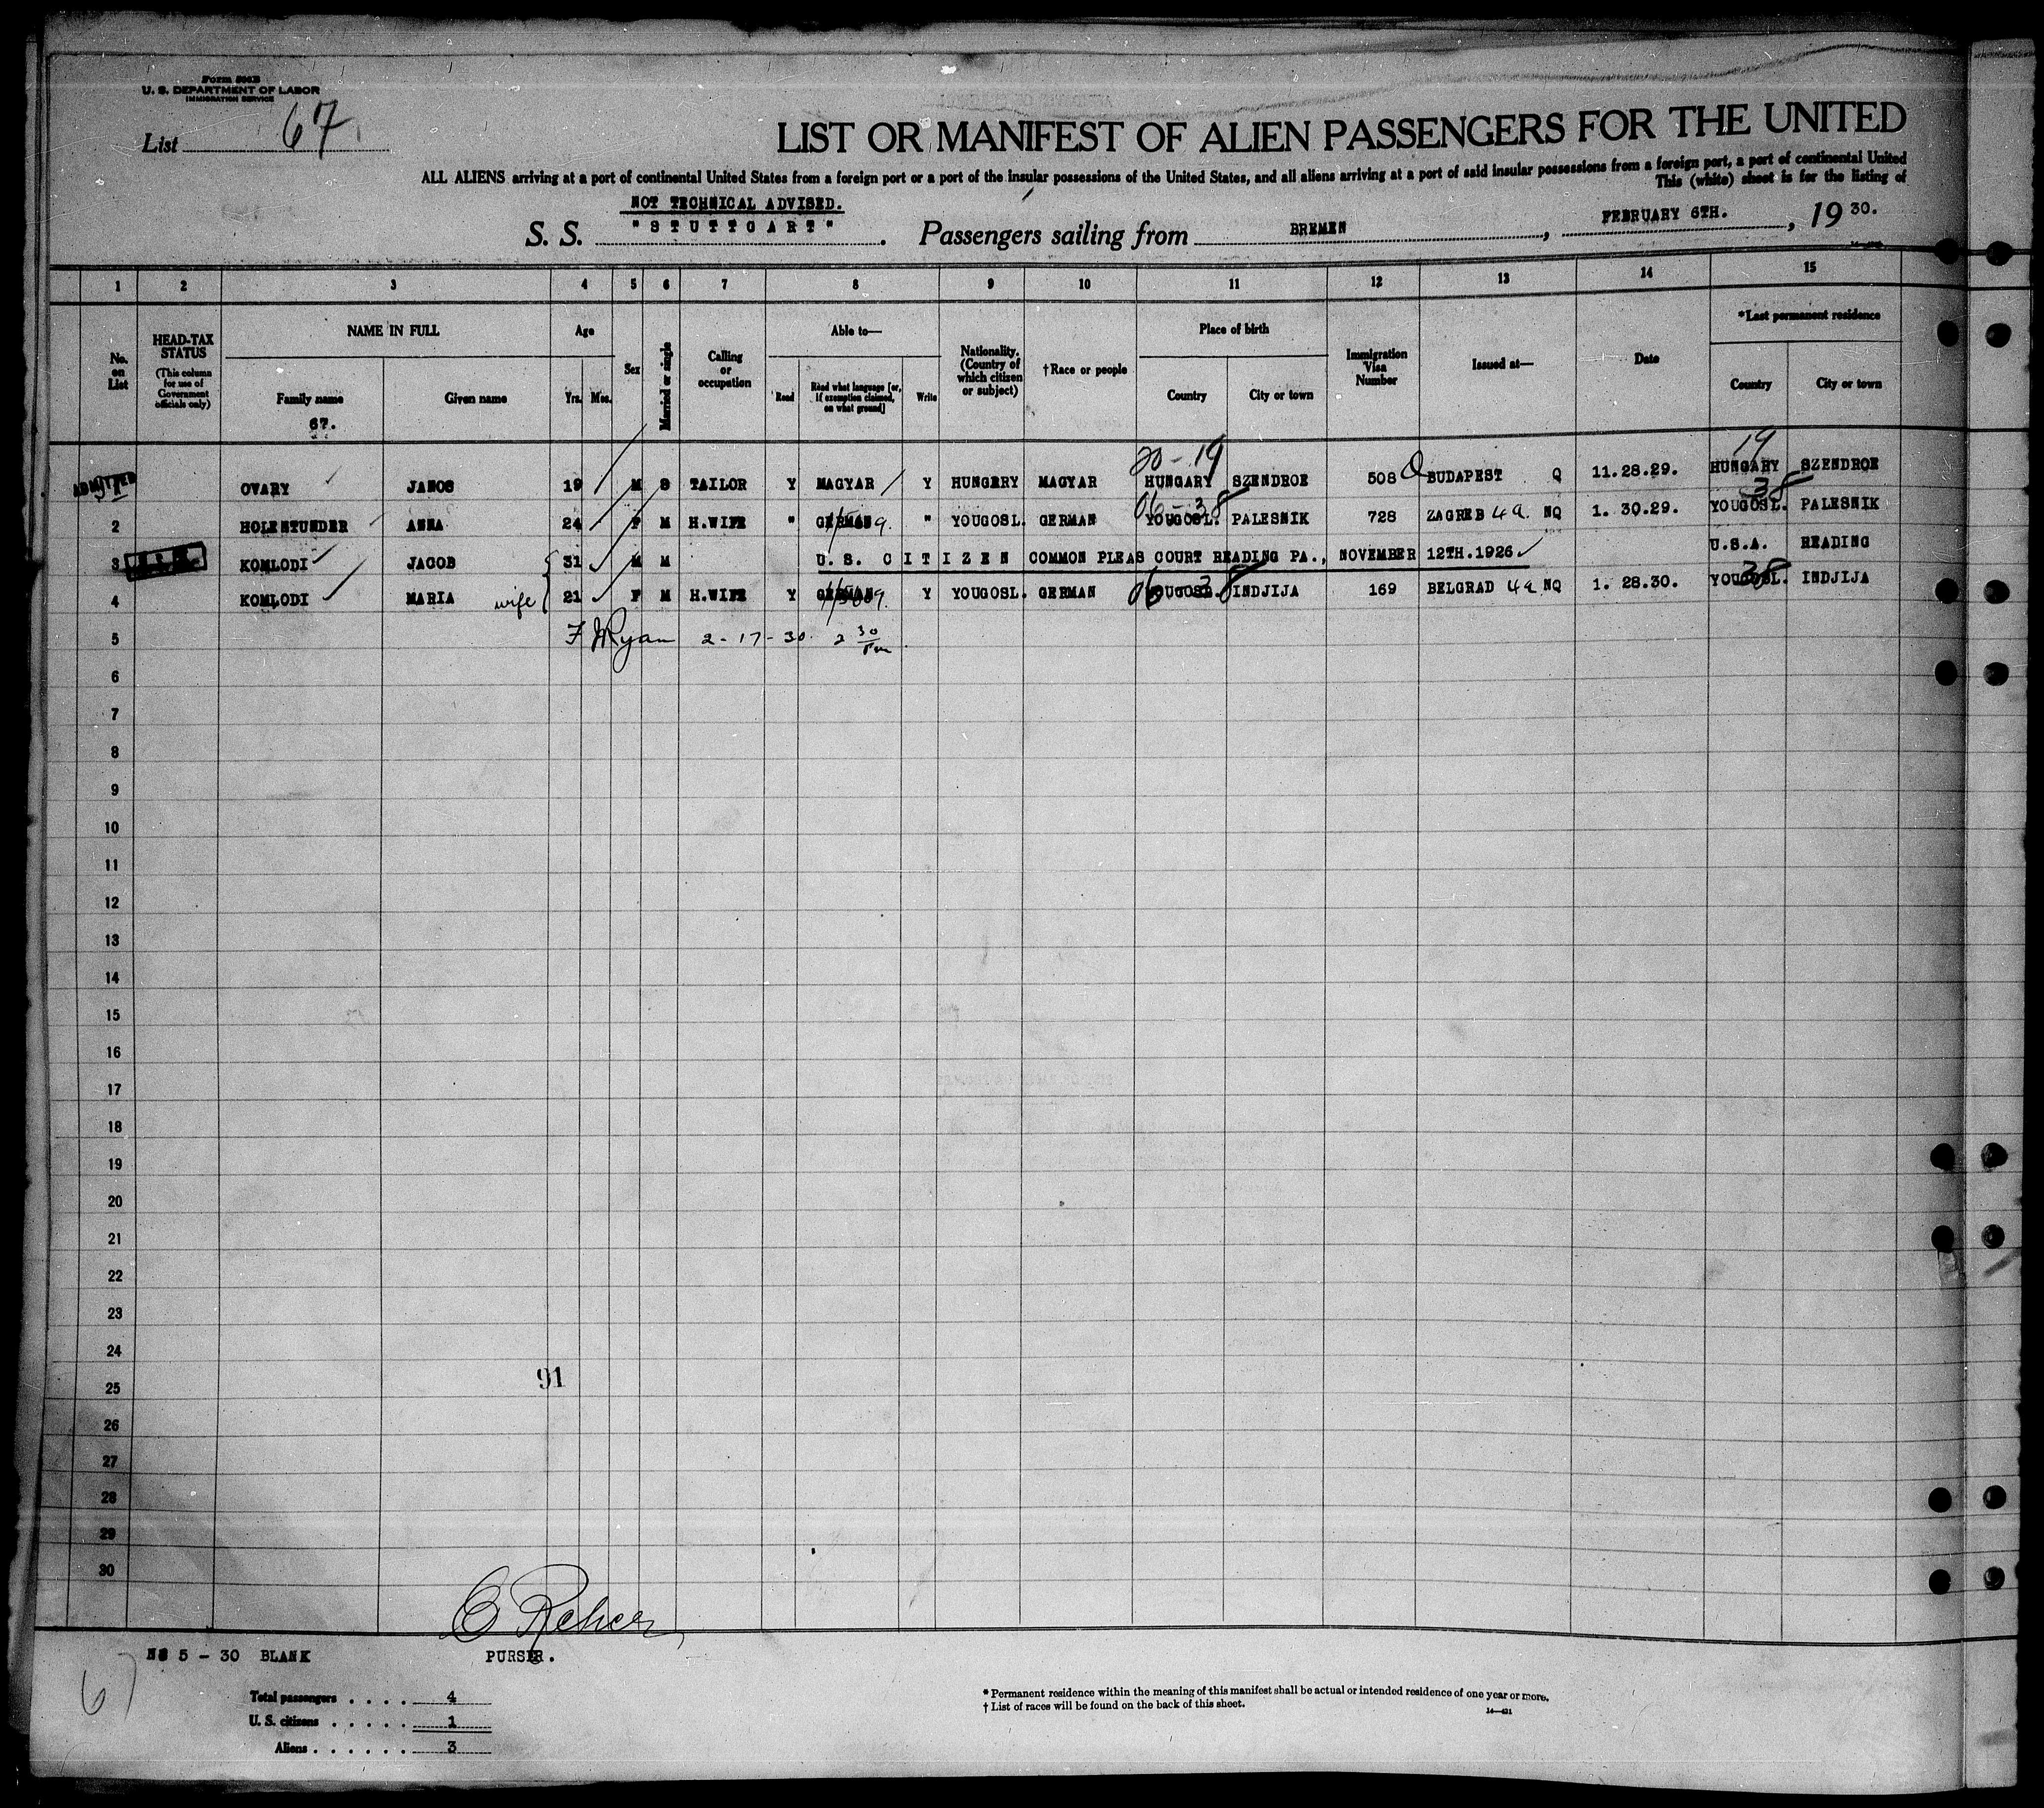 Form 500B
U. S. DEPARTMENT OF LABOR
IMMIGRATION SERVICE
List 67
LIST OR MANIFEST OF ALIEN PASSENGERS FOR THE UNITED
ALL ALIENS arriving at a port of continental United States from a foreign port or a port of the insular possessions of the United States, and all aliens arriving at a port of said insular possessions from a foreign port, a port of continental United
This (white) sheet is for the listing of
NOT TECHNICAL ADVISED.
S. S. "STUTTGART". Passengers sailing from BREMEN, FEBRUARY 6TH., 1930.
1 2 3 4 5 6 7 8 9 10 11 12 13 14 15
No. on List
HEAD-TAX STATUS
(This column for use of Government officials only)
NAME IN FULL
Family name
Given name
67.
Age
Yrs. Mos.
Sex
Married or single
Calling or occupation
Able to—
Read
Read what language [or, if exemption claimed, on what ground]
Write
Nationality. (Country of which citizen or subject)
†Race or people
Place of birth
Country
City or town
Immigration Visa Number
Issued at—
Date
*Last permanent residence
Country
City or town
20-19
19
ADMITTED OVARY JANOS 19 M S TAILOR Y MAGYAR Y HUNGRRY MAGYAR HUNGARY SZENDROE 508 Q BUDAPEST Q 11.28.29. HUNGARY SZENDROE
06-38
38
2 HOLENTUNDER ANNA 24 F M H.WIFE " GERMAN " YOUGOSL. GERMAN YOUGOSL. PALESNIK 728 ZAGREB 4a NQ 1. 30.29. YOUGOSL. PALESNIK
3 KOMLODI JACOB 31 M M U.S. CITIZEN COMMON PLEAS COURT READING PA., NOVEMBER 12TH.1926 U.S.A. READING
06-38
38
4 KOMLODI MARIA wife 21 F M H.WIFE Y GERMAN Y YOUGOSL. GERMAN YOUGOSL. INDJIJA 169 BELGRAD 4a NQ 1. 28.30. YOUGOSL. INDJIJA
5 F J Ryan 2-17-30 2 30 Pm
6
7
8
9
10
11
12
13
14
15
16
17
18
19
20
21
22
23
24
91
25
26
27
28
29
30
NO 5 - 30 BLANK
PURSER.
67
Total passengers . . . . 4
U. S. citizens . . . . . 1
Aliens . . . . . . 3
* Permanent residence within the meaning of this manifest shall be actual or intended residence of one year or more.
† List of races will be found on the back of this sheet.
14—421